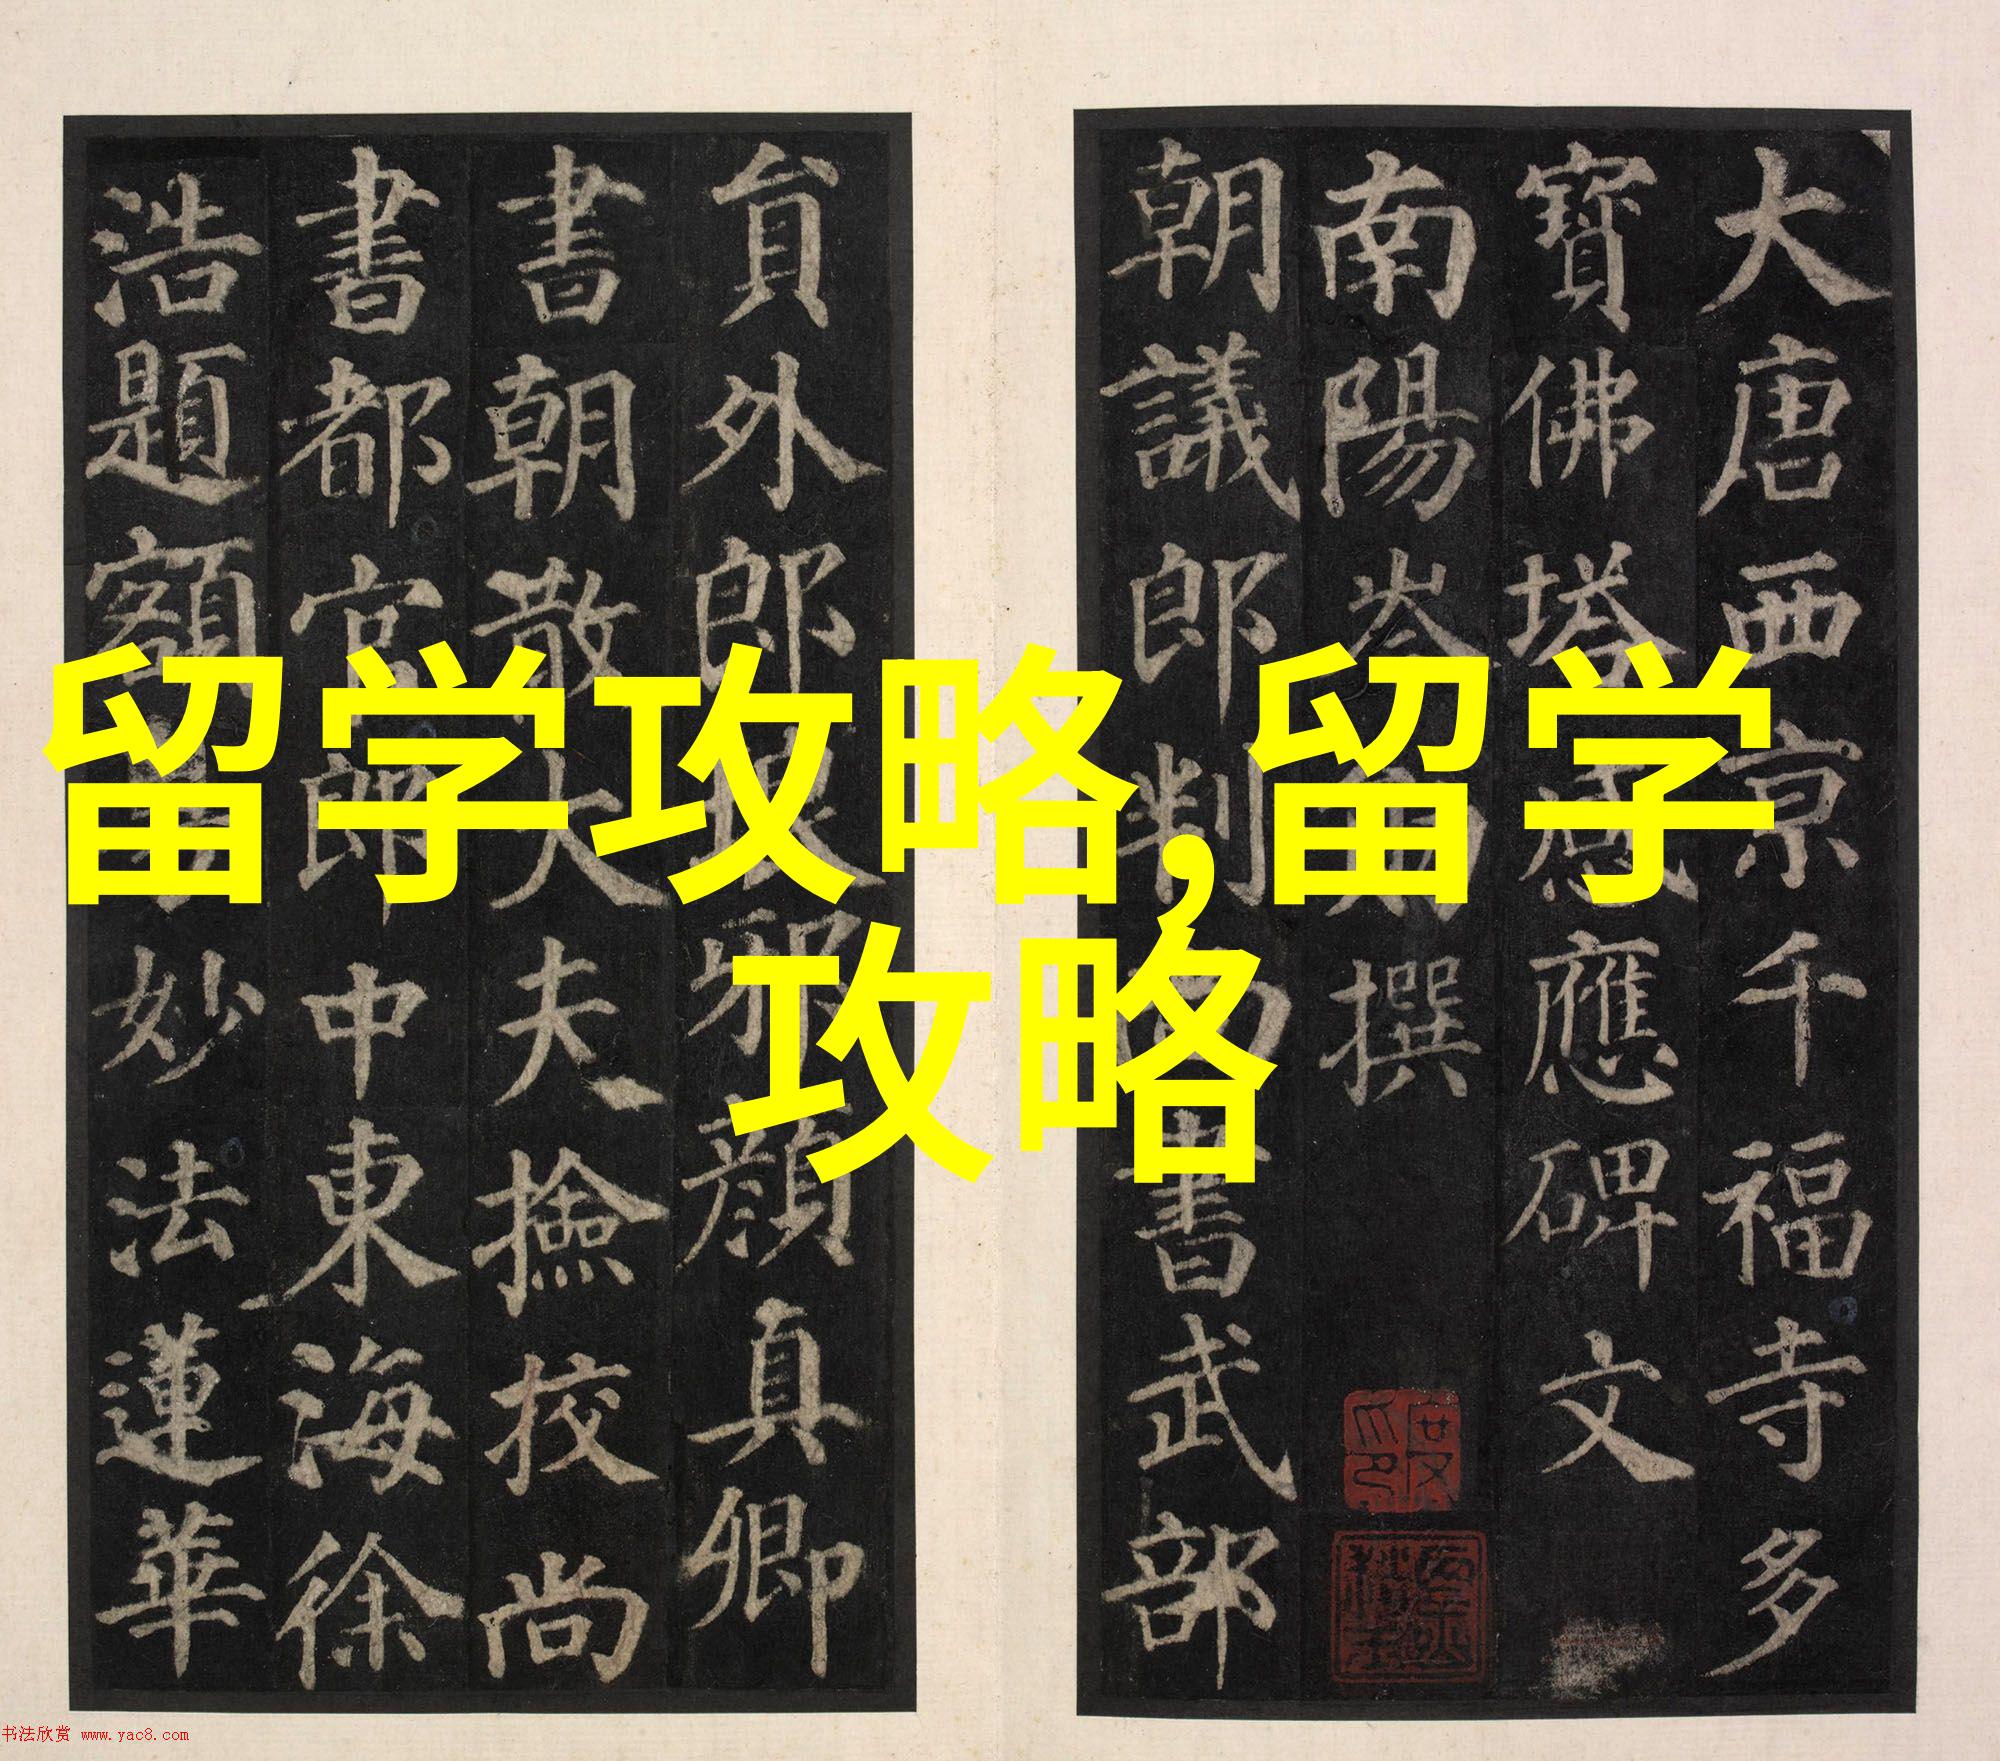 大唐西京千福寺多
寶佛塔感應碑文
南陽岑撰
朝議郎判書武部
貟外郎邪顏真卿
書朝散大夫撿校尚
書都官郎中東海徐
浩題額妙法蓮華
留学攻略,留学
攻略
书法欣赏 www.yac8.com